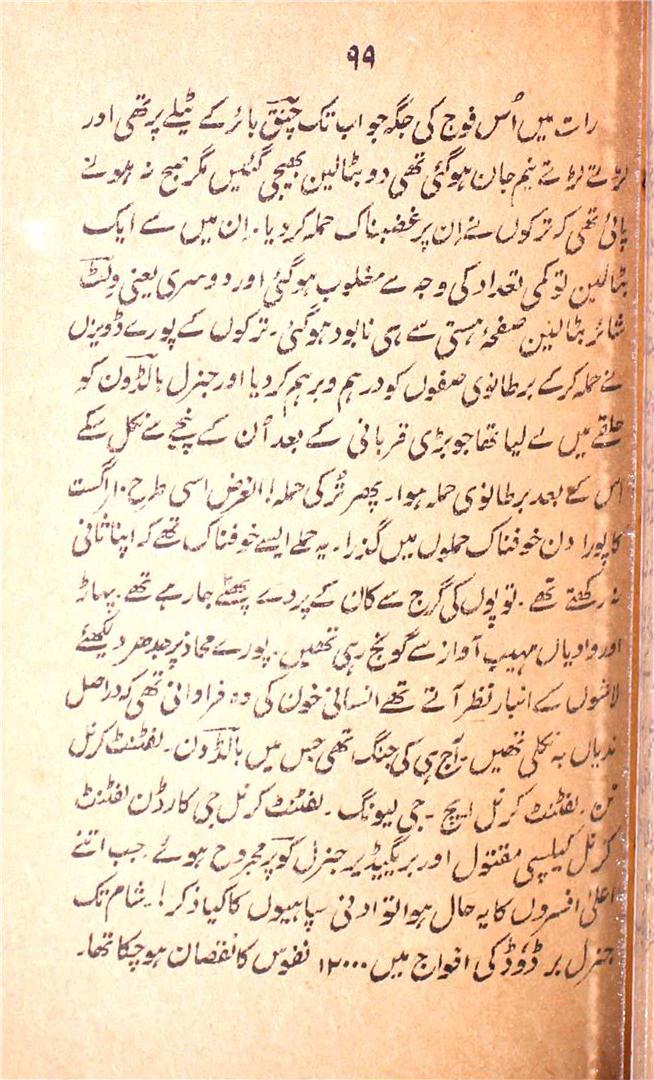 ۹۹
رات میں اُس فوج کی جگہ جو اب تک چنق بائر کے ٹیلے پر تھی اور
لڑتے لڑتے نیم جان ہوگئی تھی دو بٹالین بھیجی گئیں مگر صبح نہ ہونے
پائی تھی کہ ترکوں نے اِن پر غضبناک حملہ کر دیا۔ اِن میں سے ایک
بٹالین تو کمی تعداد کی وجہ سے مغلوب ہوگئی اور دوسری یعنی ولٹ
شائر بٹالین صفحۂ ہستی سے ہی نابود ہوگئی۔ ترکوں کے پورے ڈویژن
نے حملہ کر کے برطانوی صفوں کو درہم و برہم کر دیا اور جنرل بالڈون کو
حلقے میں لے لیا تھا جو بڑی قربانی کے بعد اُن کے پنجے سے نکل سکے
اس کے بعد برطانوی حملہ ہوا۔ پھر تُرکی حملہ! الغرض اسی طرح ۱۰ اگست
کا پورا دن خوفناک حملوں میں گذرا۔ یہ حملے ایسے خوفناک تھے کہ اپنا ثانی
نہ رکھتے تھے۔ توپوں کی گرج سے کان کے پردے پھٹے جا رہے تھے۔ پہاڑ
اور وادیاں مہیب آواز سے گونج رہی تھیں۔ پورے محاذ پر جدھر دیکھئے
لاشوں کے انبار نظر آتے تھے انسانی خون کی وہ فراوانی تھی کہ دراصل
ندیاں بہ نکلی تھیں۔ آج ہی کی جنگ تھی جس میں بالڈون۔ لفٹنٹ کرنل
نن۔ لفٹنٹ کرنل ایچ۔ جی لیونگ۔ لفٹنٹ کرنل جی کارڈن لفٹنٹ
کرنل کیلسی مقتول اور بریگیڈیر جنرل کوپر مجروح ہوئے۔ جب اتنے
اعلیٰ افسروں کا یہ حال ہوا تو ادنیٰ سپاہیوں کا کیا ذکر!۔ شام تک
جنرل بر ڈوڈ کی افواج میں ۱۲۰۰۰ نفوس کا نقصان ہو چکا تھا۔